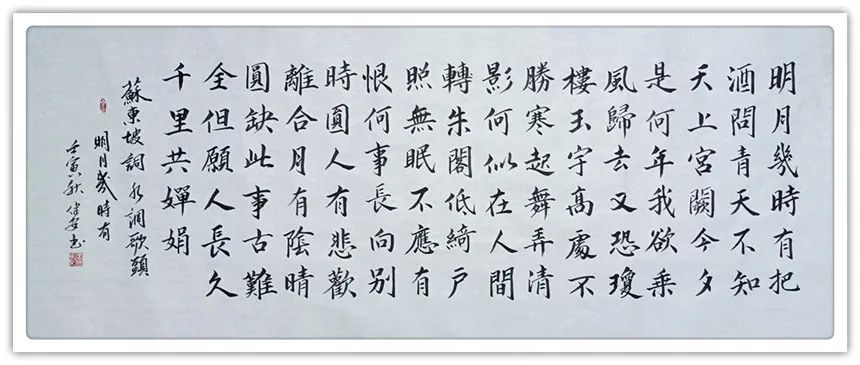 明月幾時有把
酒問青天不知
天上宮闕今夕
是何年我欲乘
風歸去又恐瓊
樓玉宇高處不
勝寒起舞弄清
影何似在人間
轉朱閣低綺戶
照無眠不應有
恨何事長向别
時圓人有悲歡
離合月有陰晴
圓缺此事古難
全但願人長久
千里共嬋娟
蘇東坡詞水調歌頭
明月幾時有
壬寅秋 书